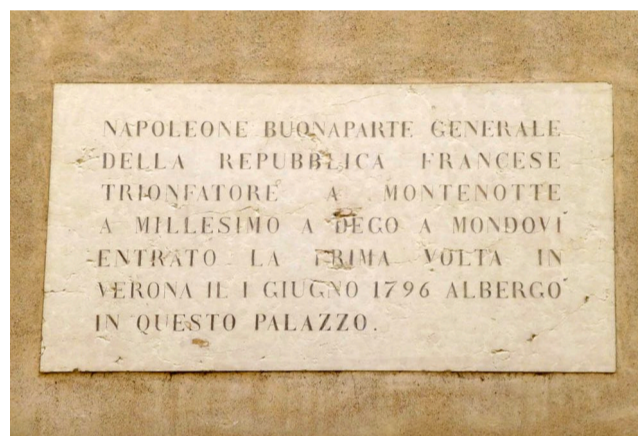 NAPOLEONE BUONAPARTE GENERALE
DELLA REPUBBLICA FRANCESE
TRIONFATORE A MONTENOTTE
A MILLESIMO A DEGO A MONDOVI
ENTRATO LA PRIMA VOLTA IN
VERONA IL I GIUGNO 1796 ALBERGO
IN QUESTO PALAZZO.